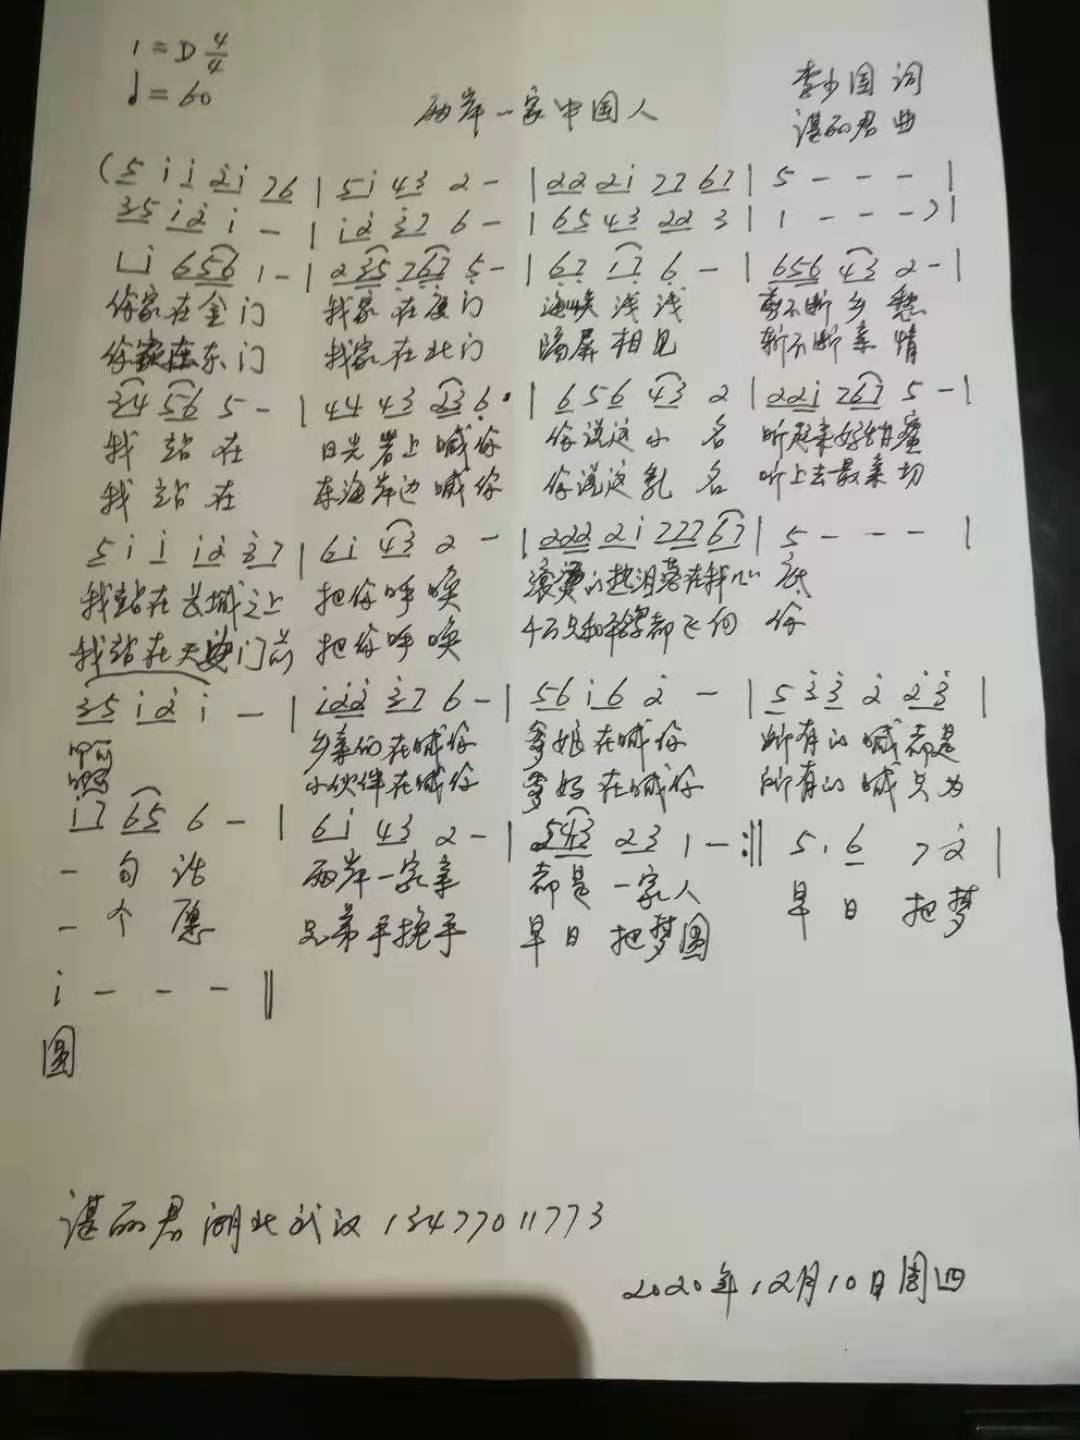 1=D 4/4
♩=60
两岸一家中国人
李少国 词
谌丽君 曲
(5 i i 2i 76 | 5i 43 2 - | 22 2i 77 67 | 5 - - - |
35 i2 i - | i2 37 6 - | 65 43 22 3 | 1 - - - ) |
1i 656 1 - | 2 35 767 5 - | 67 17 6 - | 656 43 2 - |
你家在金门 我家在厦门 海峡浅浅 剪不断乡愁
你家在东门 我家在北门 隔屏相见 斩不断亲情
34 56 5 - | 44 43 23 6 · | 6 56 43 2 | 22i 767 5 - |
我站在 日光岩上喊你 你说这小名 听起来好甜蜜
我站在 东海岸边喊你 你说这乳名 听上去最亲切
5 i i i2 37 | 6i 43 2 - | 222 2i 777 67 | 5 - - - |
我站在长城之上 把你呼唤 滚烫的热泪落在我心底
我站在天安门前 把你呼唤 千万只和平鸽都飞向你
35 i2 i - | i22 37 6 - | 56 i6 2 - | 5 33 2 23 |
啊 乡亲们在喊你 爹娘在喊你 所有的喊都是
小伙伴在喊你 爹妈在喊你 所有的喊只为
i7 65 6 - | 6i 43 2 - | 543 23 1 - :‖ 5. 6 7 2 |
一句话 两岸一家亲 都是一家人
一个愿 兄弟手挽手 早日把梦圆 早日把梦
i - - - ‖
圆
谌丽君 湖北武汉 13477011773
2020年12月10日周四